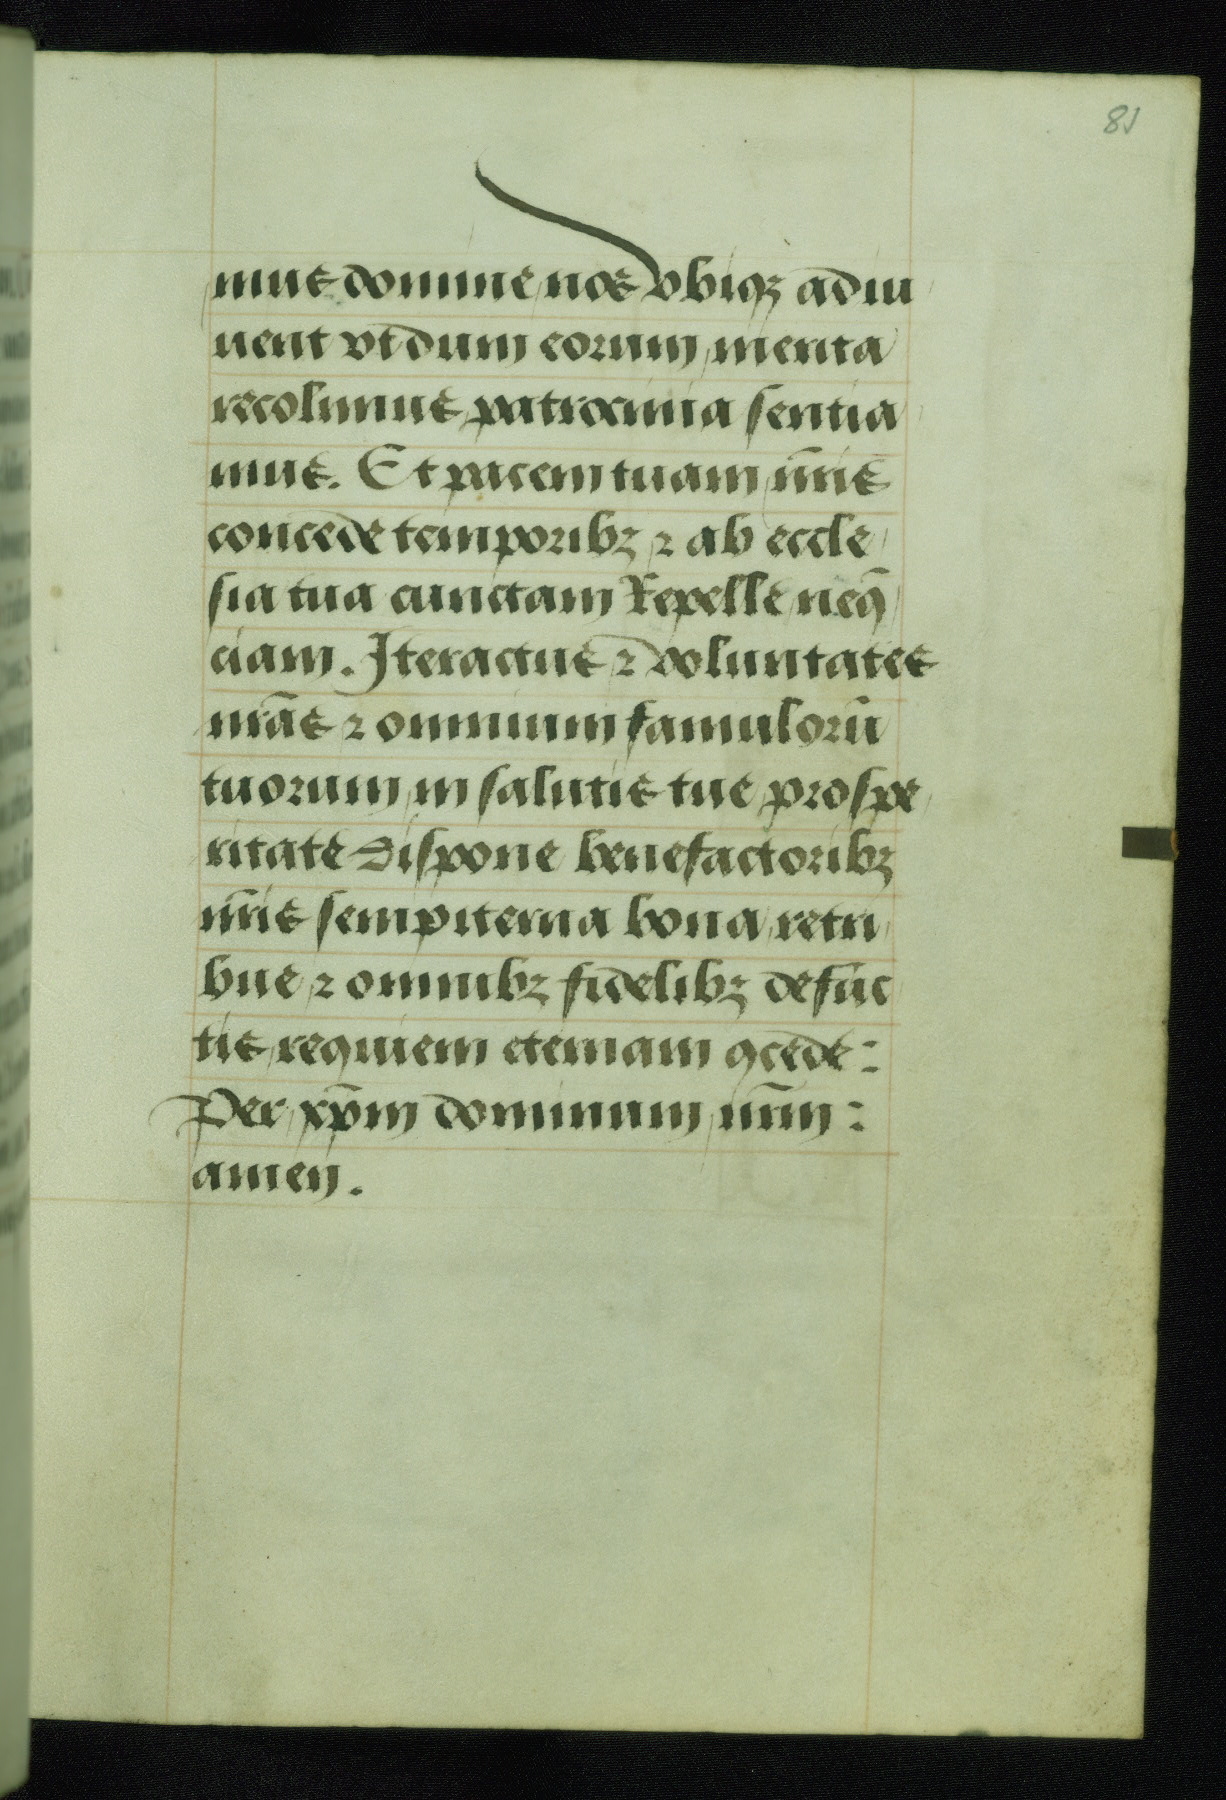 81
mus domine nos vbiqȝ adiu
uent vt dum eorum merita
recolimus patrocinia sentia
mus. Et pacem tuam nr̄is
concede temporibȝ ⁊ ab eccle
sia tua cunctam Repelle neq̄
ciam. Iter actus ⁊ voluntates
nr̄as ⁊ omnium famulorū
tuorum in salutis tue prospe
ritate Dispone benefactoribȝ
nr̄is sempiterna bona retri
bue ⁊ omnibȝ fidelibȝ defūc
tis requiem eternam ꝯcede:
Per xp̄m dominum nr̄m:
amen.